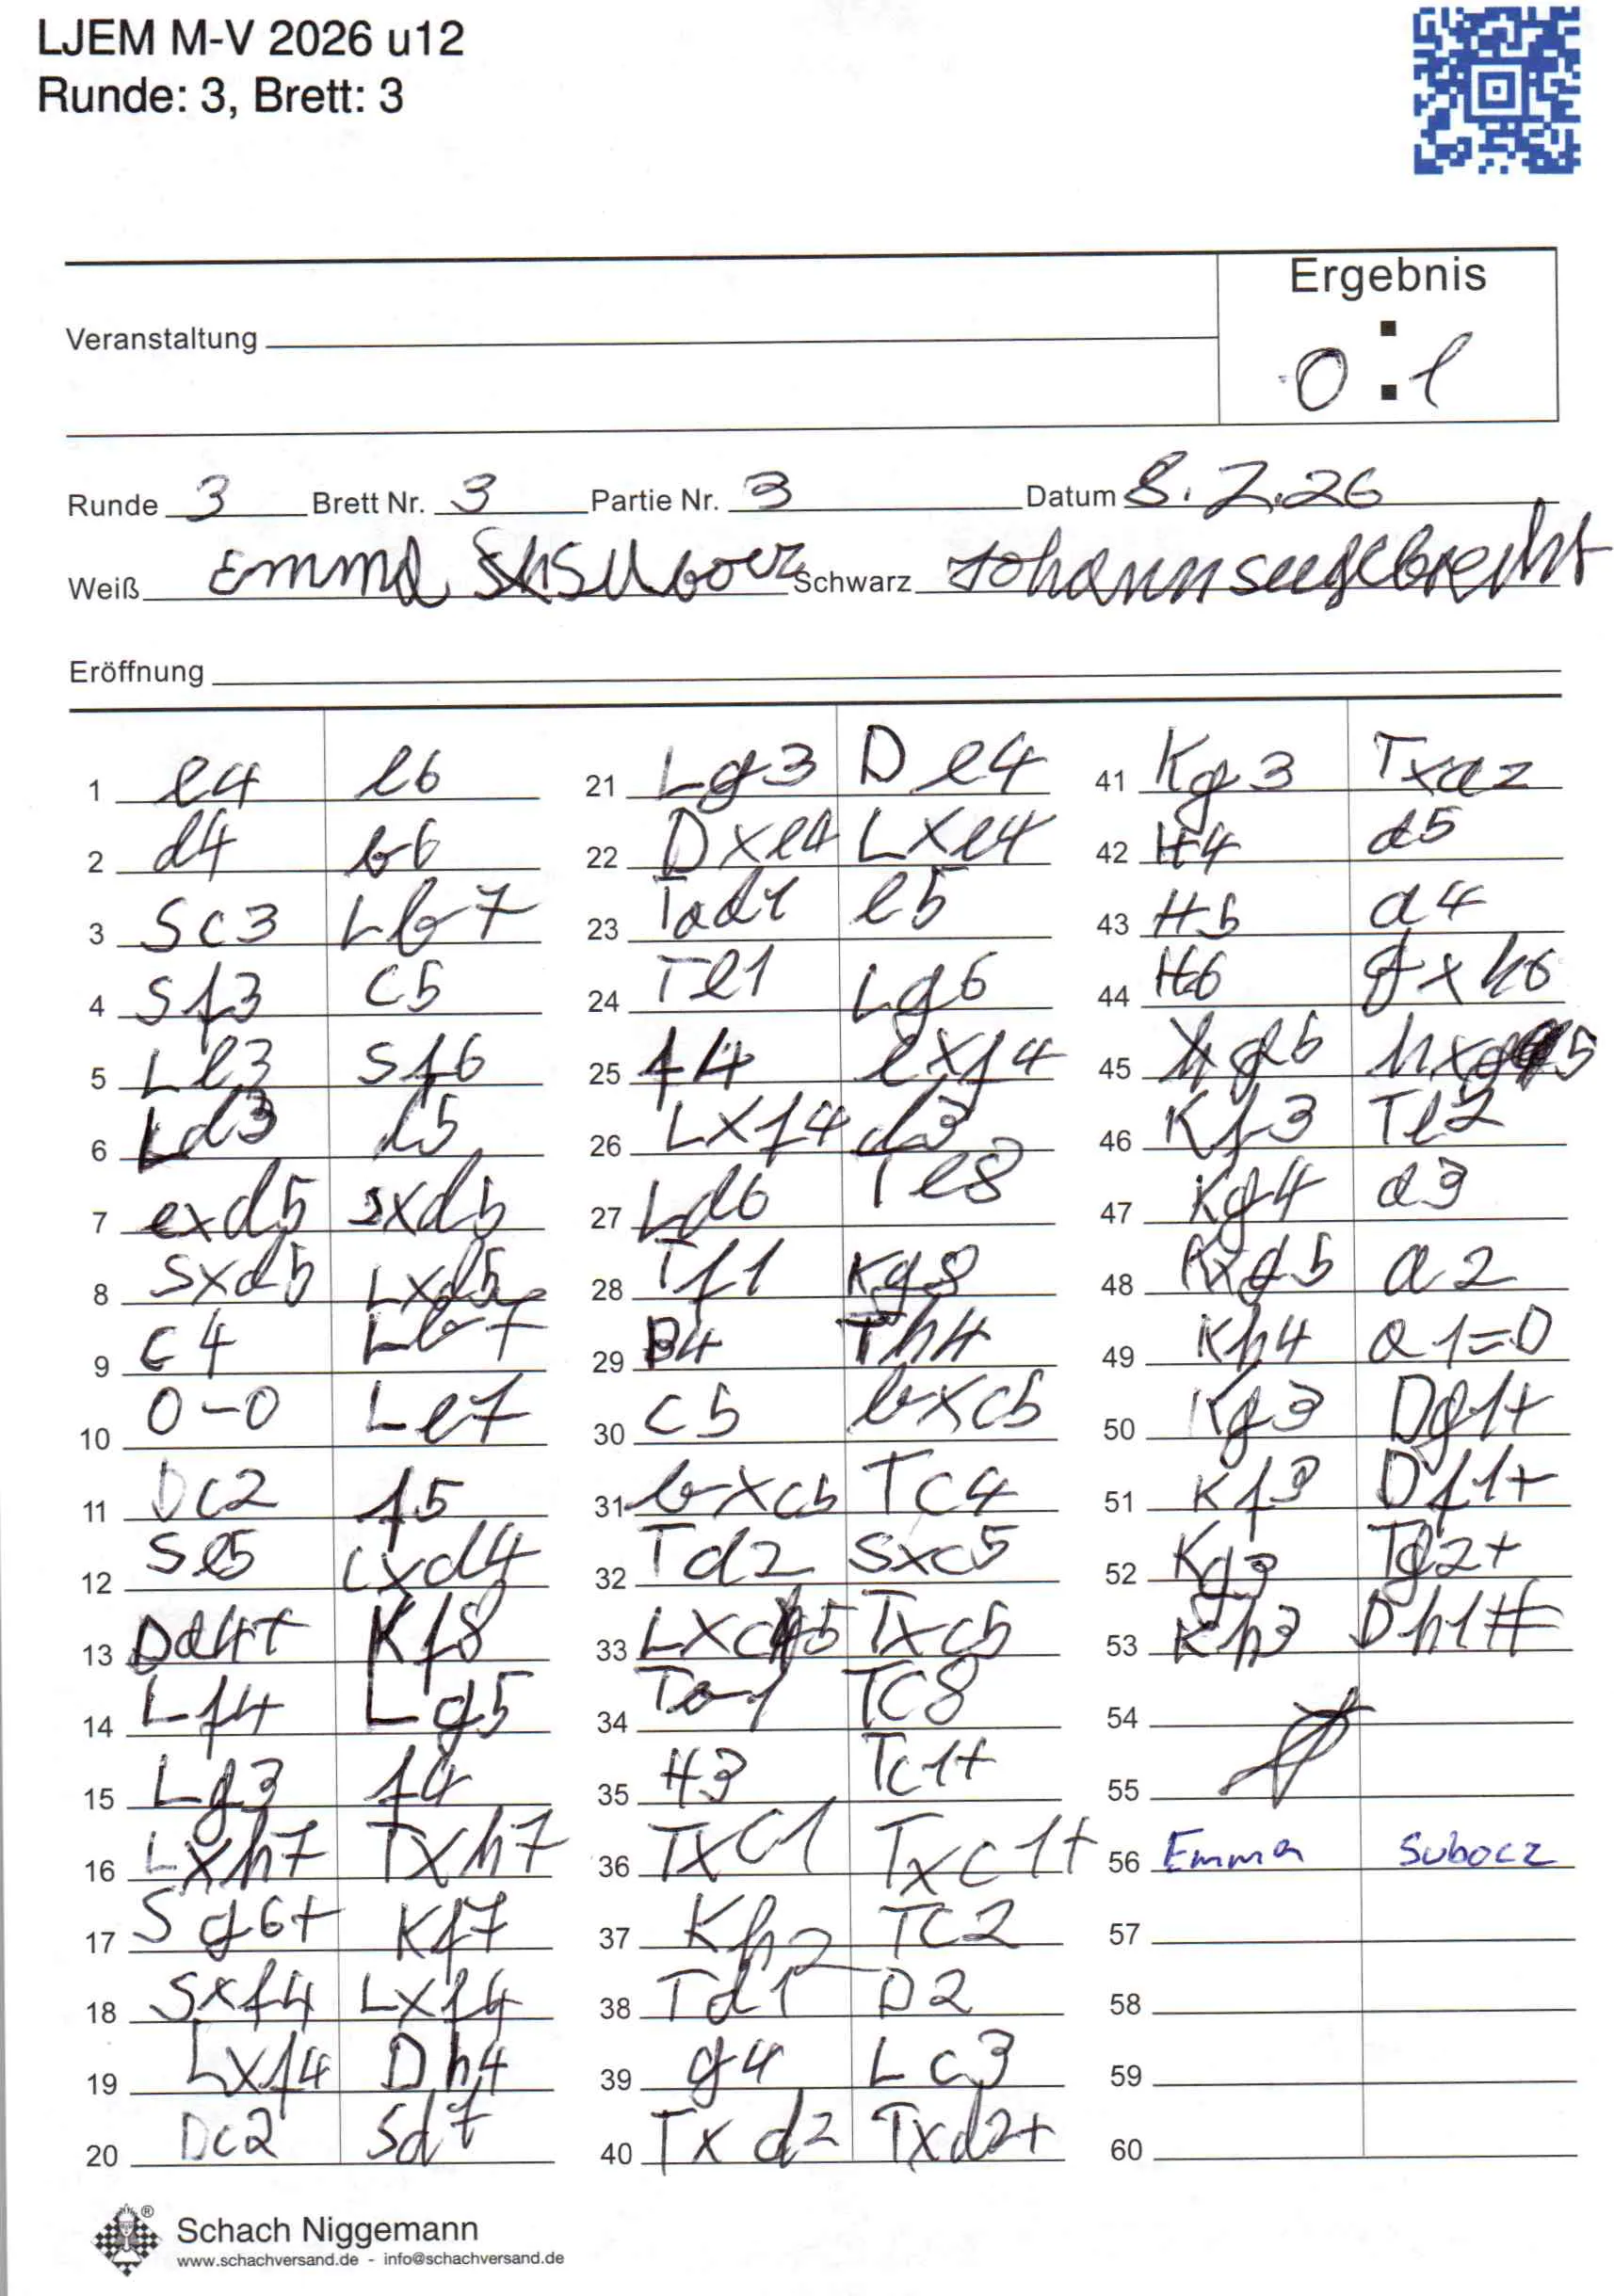 LJEM M-V 2026 u12
Runde: 3, Brett: 3
Ergebnis
Veranstaltung
0:1
Runde 3 Brett Nr. 3 Partie Nr. 3 Datum 8.2.26
Weiß Emma Schwarz Johann
Eröffnung
1 e4 e6
2 d4 b6
3 Sc3 Lb7
4 Sf3 c5
5 Le3 Sf6
6 Ld3 d5
7 exd5 Sxd5
8 Sxd5 Lxd5
9 c4 Lb7
10 0-0 Le7
11 Dc2 f5
12 Se5 cxd4
13 Da4+ Kf8
14 Lf4 Lg5
15 Lg3 f4
16 Lxh7 Txh7
17 Sg6+ Kf7
18 Sxf4 Lxf4
19 Lxf4 Dh4
20 Dc2 Sd7
21 Lg3 De4
22 Dxe4 Lxe4
23 Tad1 e5
24 Te1 Lg6
25 f4 exf4
26 Lxf4 d3
27 Ld6 Te8
28 Tf1 Kg8
29 B4 Th4
30 c5 bxc5
31 bxc5 Tc4
32 Td2 Sxc5
33 Lxc5 Txc5
34 Tb1 TC8
35 H3 Tc1+
36 TxC1 Txc1+
37 Kh2 TC2
38 Td1 D2
39 g4 Lc3
40 Txd2 Txd2+
41 Kg3 Txa2
42 H4 a5
43 H5 a4
44 H6 gxh6
45 g5 hxg5
46 Kf3 Te2
47 Kg4 a3
48 Kxg5 a2
49 Kh4 a1=D
50 Kg3 Dg1+
51 Kf3 Df1+
52 Kg3 Tg2+
53 Kh3 Dh1#
54
55
56 Emma Subocz
57
58
59
60
Schach Niggemann
www.schachversand.de - info@schachversand.de